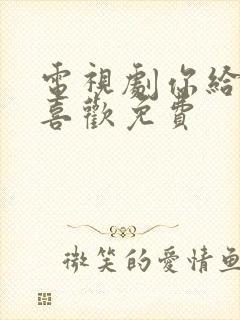 電視劇你給
喜歡免費
微笑的愛情魚